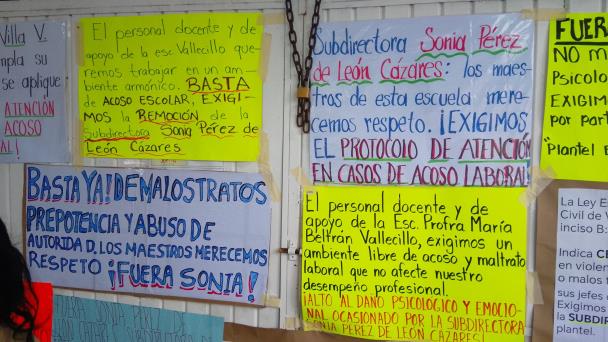 Villa V.
mpla su
se aplique
ATENCIÓN
ACOSO
AL!
El personal docente y de
apoyo de la esc. Vallecillo que-
remos trabajar en un am-
biente armónico. BASTA
de ACOSO ESCOLAR, EXIGI-
MOS la REMOCIÓN de la
Subdirectora Sonia Pérez de
León Cázares
Subdirectora Sonia Pérez
de León Cázares: los maes-
tros de esta escuela mere-
cemos respeto. ¡EXIGIMOS
EL PROTOCOLO DE ATENCIÓN
EN CASOS DE ACOSO LABORAL!
FUERA
NO M
Psicolo
EXIGIM
por part
"Plantel E
BASTA YA! DE MALOS TRATOS
PREPOTENCIA Y ABUSO DE
AUTORIDAD. LOS MAESTROS MERECEMOS
RESPETO ¡FUERA SONIA!
El personal docente y de
apoyo de la Esc. Profra María
Beltrán Vallecillo, exigimos un
ambiente libre de acoso y maltrato
laboral que no afecte nuestro
desempeño profesional.
¡ALTO AL DAÑO PSICOLÓGICO Y EMOCIO-
NAL OCASIONADO POR LA SUBDIRECTORA
SONIA PÉREZ DE LEÓN CÁZARES!
La Ley E
Civil de V
inciso B:
Indica CE
en violen
o malos t
sus jefes
Exigimos
la SUBDIR
plantel.